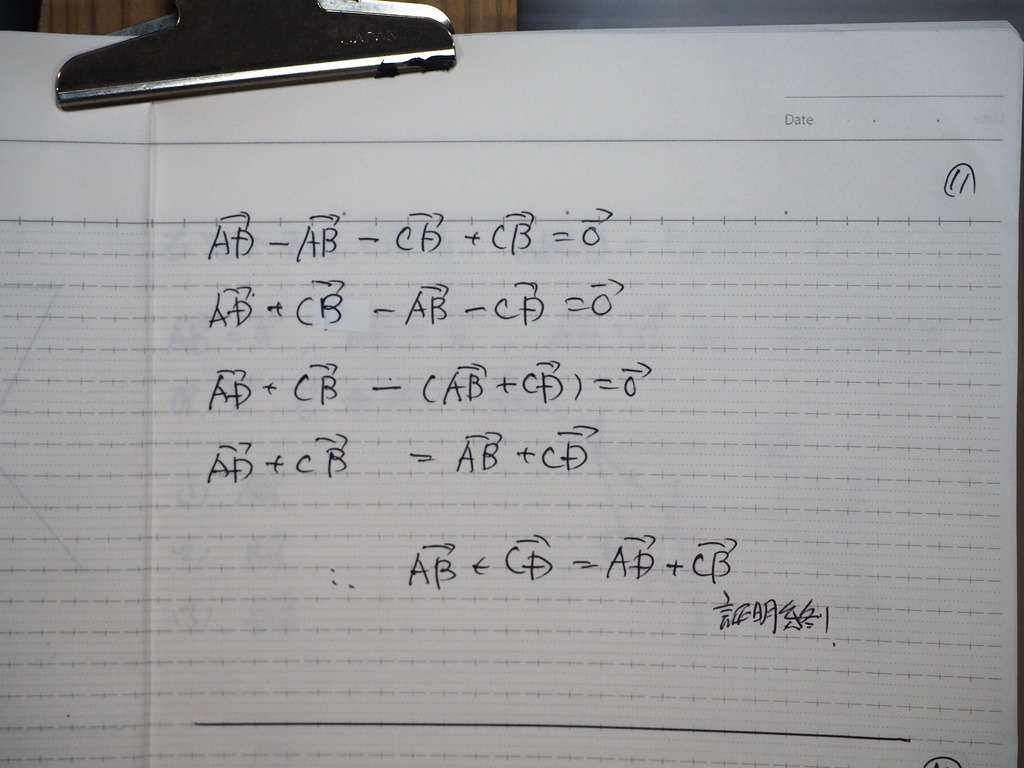 JAPAN
Date
⑪
$\overrightarrow{AD} - \overrightarrow{AB} - \overrightarrow{CD} + \overrightarrow{CB} = \vec{0}$
$\overrightarrow{AD} + \overrightarrow{CB} - \overrightarrow{AB} - \overrightarrow{CD} = \vec{0}$
$\overrightarrow{AD} + \overrightarrow{CB} - (\overrightarrow{AB} + \overrightarrow{CD}) = \vec{0}$
$\overrightarrow{AD} + \overrightarrow{CB} = \overrightarrow{AB} + \overrightarrow{CD}$
$\therefore \overrightarrow{AB} + \overrightarrow{CD} = \overrightarrow{AD} + \overrightarrow{CB}$
証明終り.